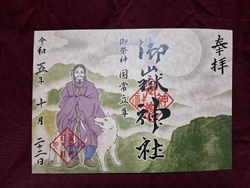 奉拝
御嶽神社
御祭神 国常立尊
令和五年十月二十二日